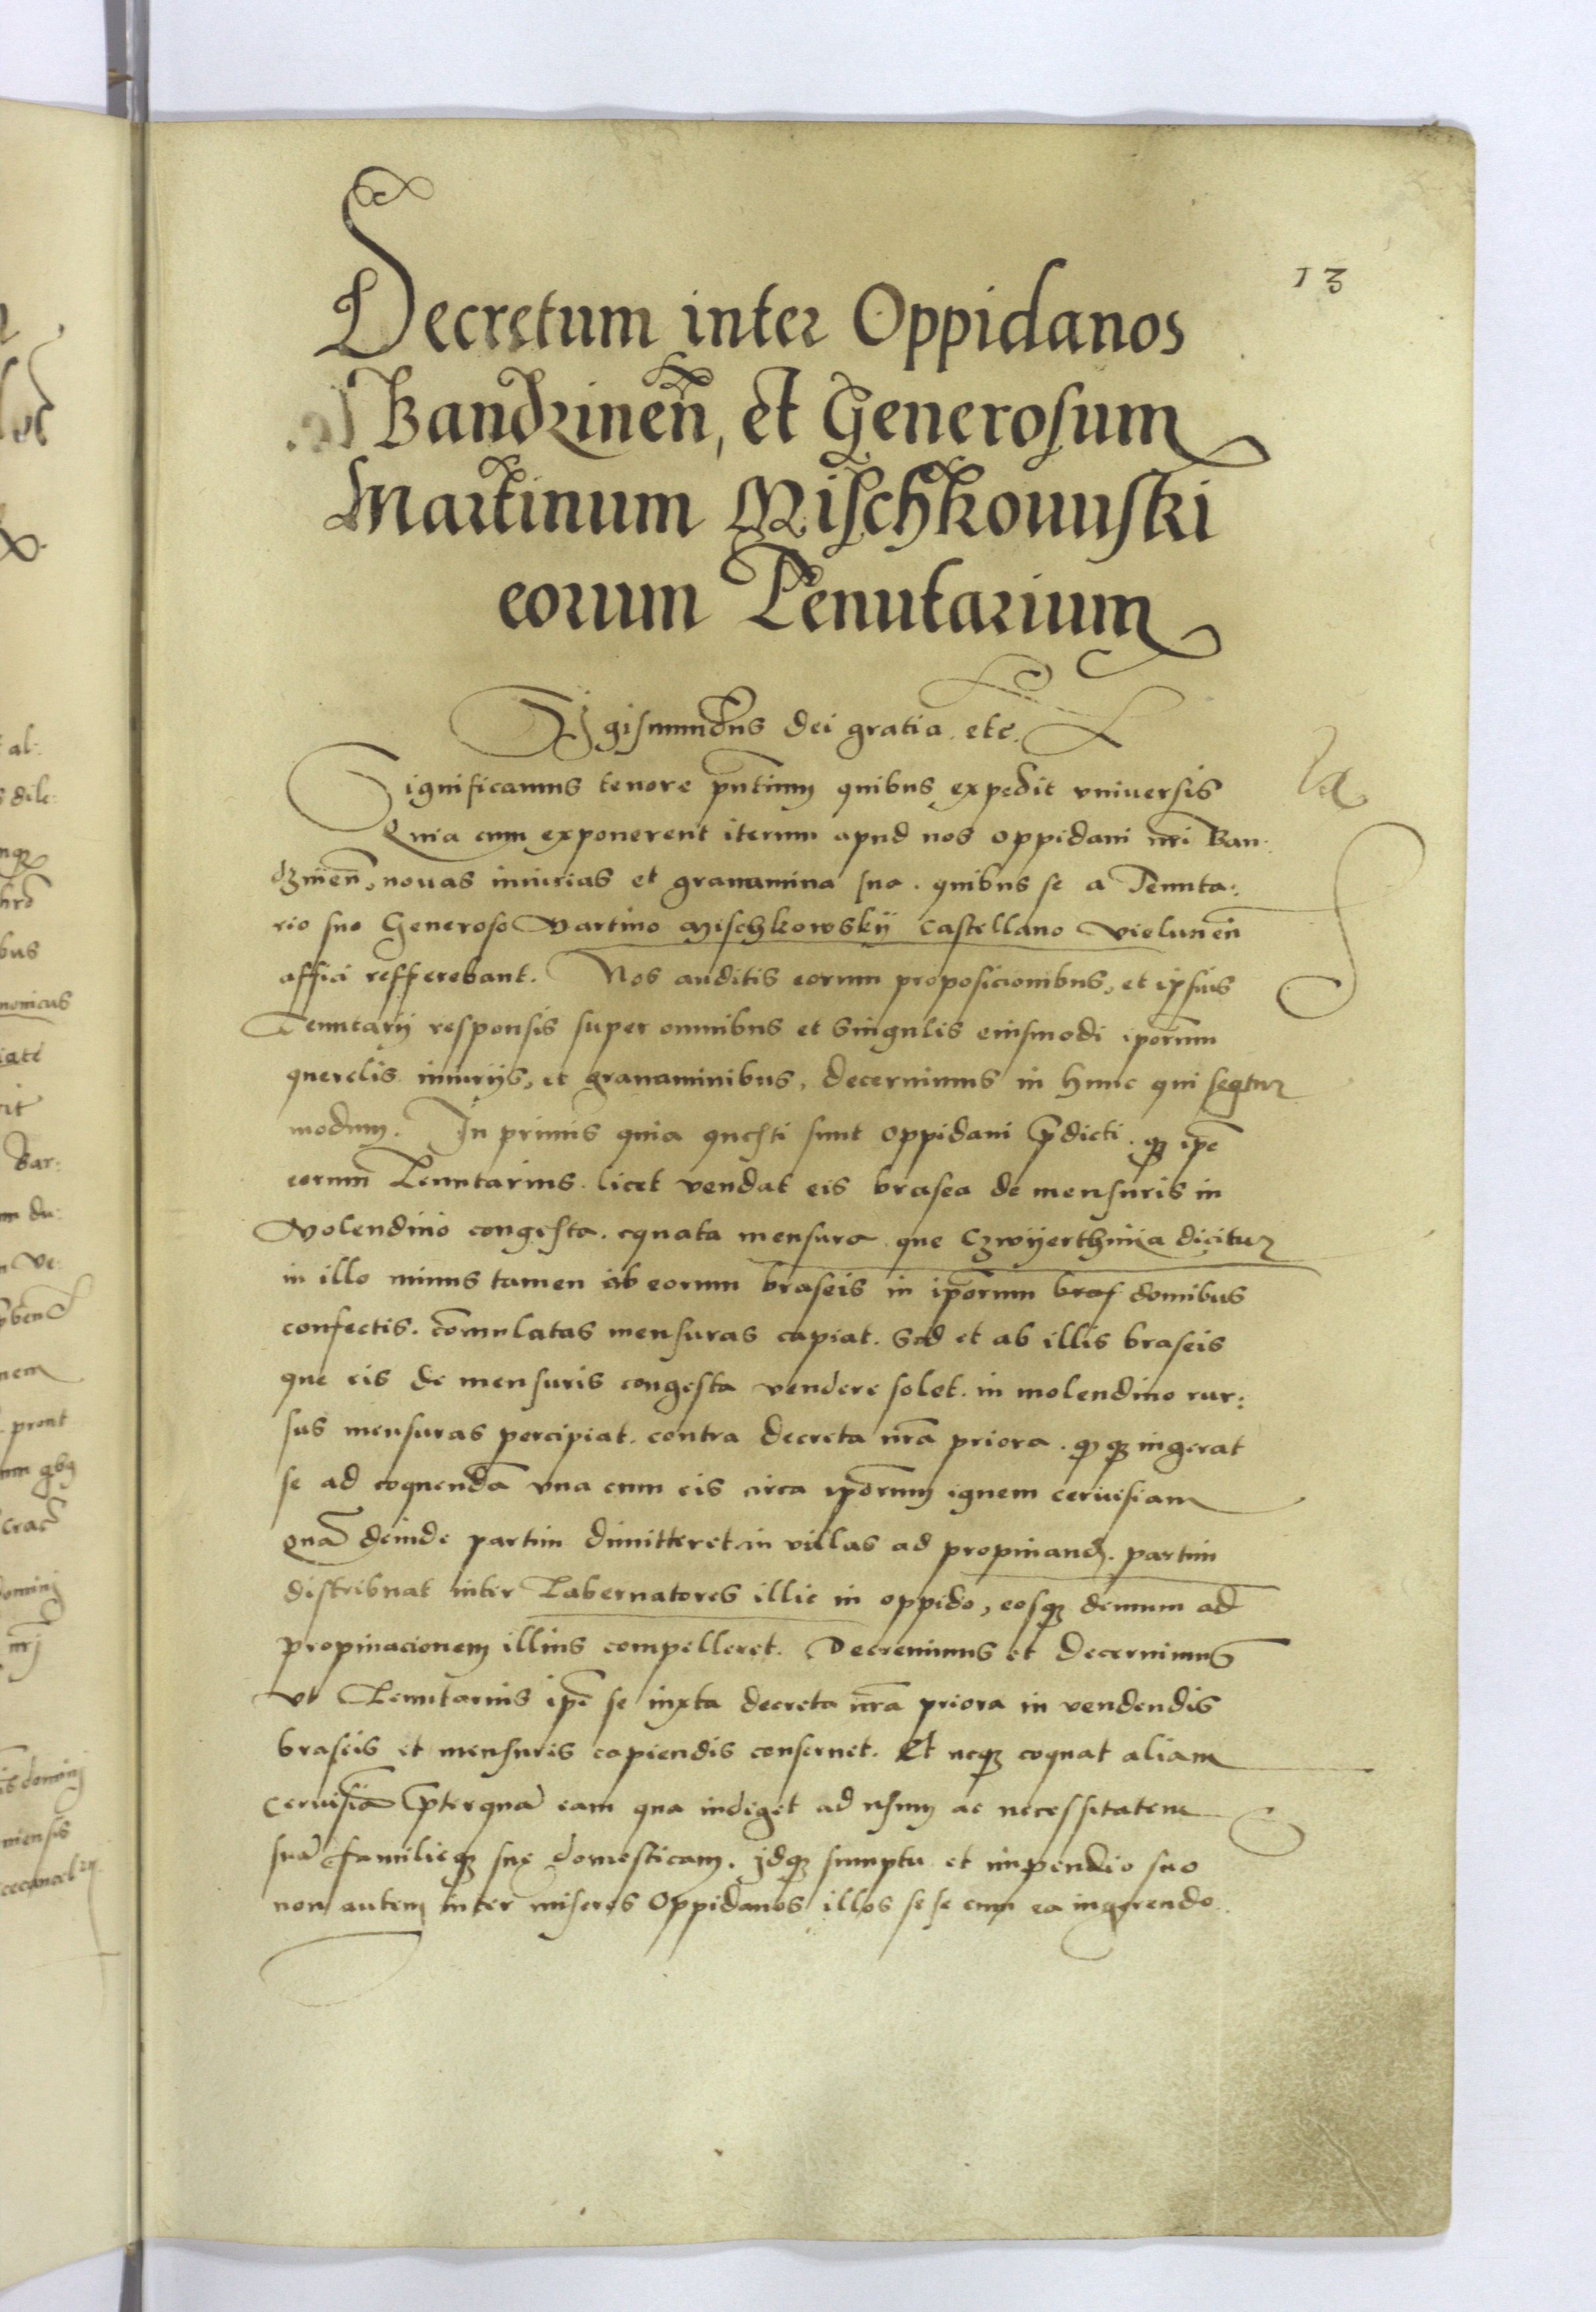 13
Decretum inter Oppidanos
Bandzinen̄, et Generosum
Martinum Mischkowski
eorum Tenutarium
Sigismundus dei gratia etc.
Significamus tenore p̄ntium quibus expedit vniuersis
Quia cum exponerent iterum apud nos oppidani n̄ri Ban:
dzinen̄, nouas iniurias et grauamina sua. quibus se a Tenuta:
rio suo Generoso Martino Mischkowskij Castellano Vielunen̄
affici refferebant. Nos auditis eorum proposicionibus, et ipsius
Tenutarij responsis super omnibus et singulis eiusmodi ip̄orum
querelis iniurijs, et grauaminibus, decernimus in hunc qui seqtur
modum. In primis quia questi sunt oppidani p̄dicti. qꝫ ip̄e
eorum Tenutarius licet vendat eis brasea de mensuris in
Molendino congesta. equata mensura que Czwijerthnia dicitur
in illo minus tamen ab eorum braseis in ip̄orum bras domibus
confectis. cōmulatas mensuras capiat. Sed et ab illis braseis
que eis de mensuris congesta vendere solet. in molendino rur:
sus mensuras percipiat. contra decreta n̄ra priora. qꝫ ingerat
se ad coquendā vna cum eis circa ip̄orum ignem ceruisiam
quā deinde partim dimitteret in villas ad propinand. partim
distribuat inter Tabernatores illic in oppido, eosqꝫ demum ad
propinacionem illius compelleret. Decreuimus et decernimus
vt Tenutarius ip̄e se iuxta decreta n̄ra priora in vendendis
braseis et mensuris capiendis conseruet. Et neqꝫ coquat aliam
ceruisiā p̄terquā eam qua indiget ad usum ac necessitatem
suā familieqꝫ sue domesticam. idqꝫ sumptu et impendio suo
non autem inter miseros Oppidanos illos se se cum ea ingerendo.